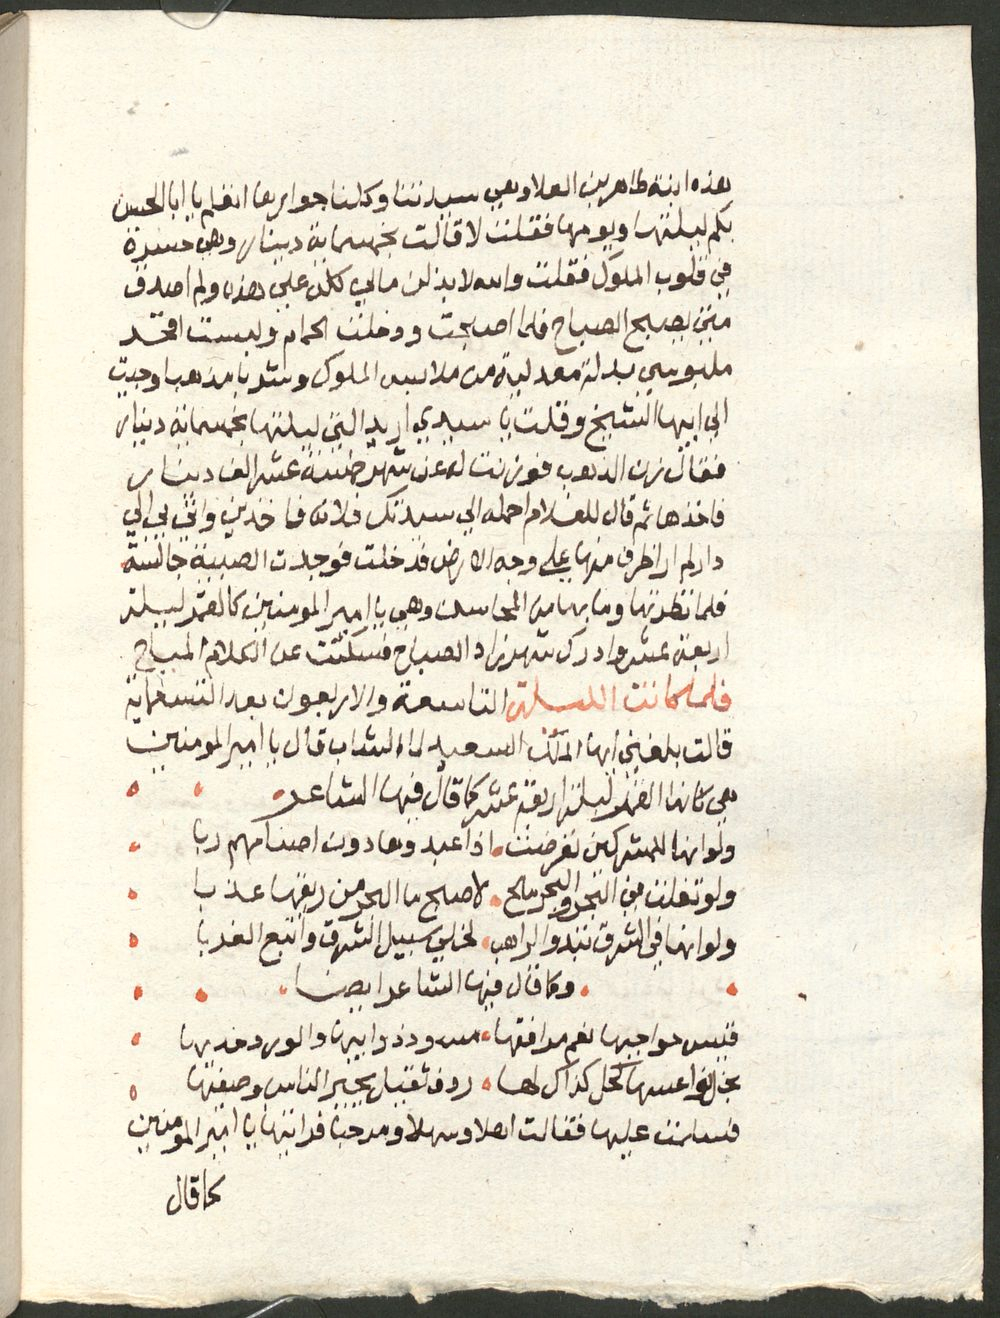 هذه ابنة طاهر بن العلا وهي سيدتنا وكلنا جوارها اتعلم يا ابا الحسن
بكم ليلتها ويومها فقلت لا قالت بخمسماية دينار وهي حسرة
في قلوب الملوك فقلت والله لا بذلن مالي كله علي هذه ولم اصدق
متي يصبح الصباح فلما اصبحت ودخلت الحمام ولبست افخر
ملبوسي بدلة معدلية من ملابس الملوك وشد بامذهب وجيت
الي ابيها الشيخ وقلت يا سيدي اريد التي ليلتها بخمسماية دينار
فقال زن الذهب فوزنت له عن شهر خمسة عشر الف دينار
فاخذها ثم قال للغلام احمله الي سيدتك فلانه فاخذني واتي بي الي
دار لم ار اظرف منها علي وجه الارض فدخلت فوجدت الصبية جالسة
فلما نظرتها وما بها من المحاسن وهي يا امير المومنين كالقمر ليلة
اربعة عشر وادرك شهرزاد الصباح فسكتت عن الكلام المباح
فلما كانت الليلة التاسعة والاربعون بعد التسعماية
قالت بلغني ايها الملك السعيد ان الشاب قال يا امير المومنين
هي كانها القمر ليلة اربعة عشر كما قال فيها الشاعر
ولو انها للمشركين تعرضت اذا عبدوها دون اصنامهم ربا
ولو تفلت في البحر والبحر مالح لاصبح ما البحر من ريقها عذبا
ولو انها في الشرق تبدوا لراهب لخلي سبيل الشرق واتبع الغربا
وكما قال فيها الشاعر ايضا
حواجبها مرافقها ذوايبها والورد خديها
عينيها كحل كذاك لها ردف ثقيل يحير الناس وصفتها
فسلمت عليها فقالت اهلا وسهلا ومرحبا فرايتها يا امير المومنين
كما قال